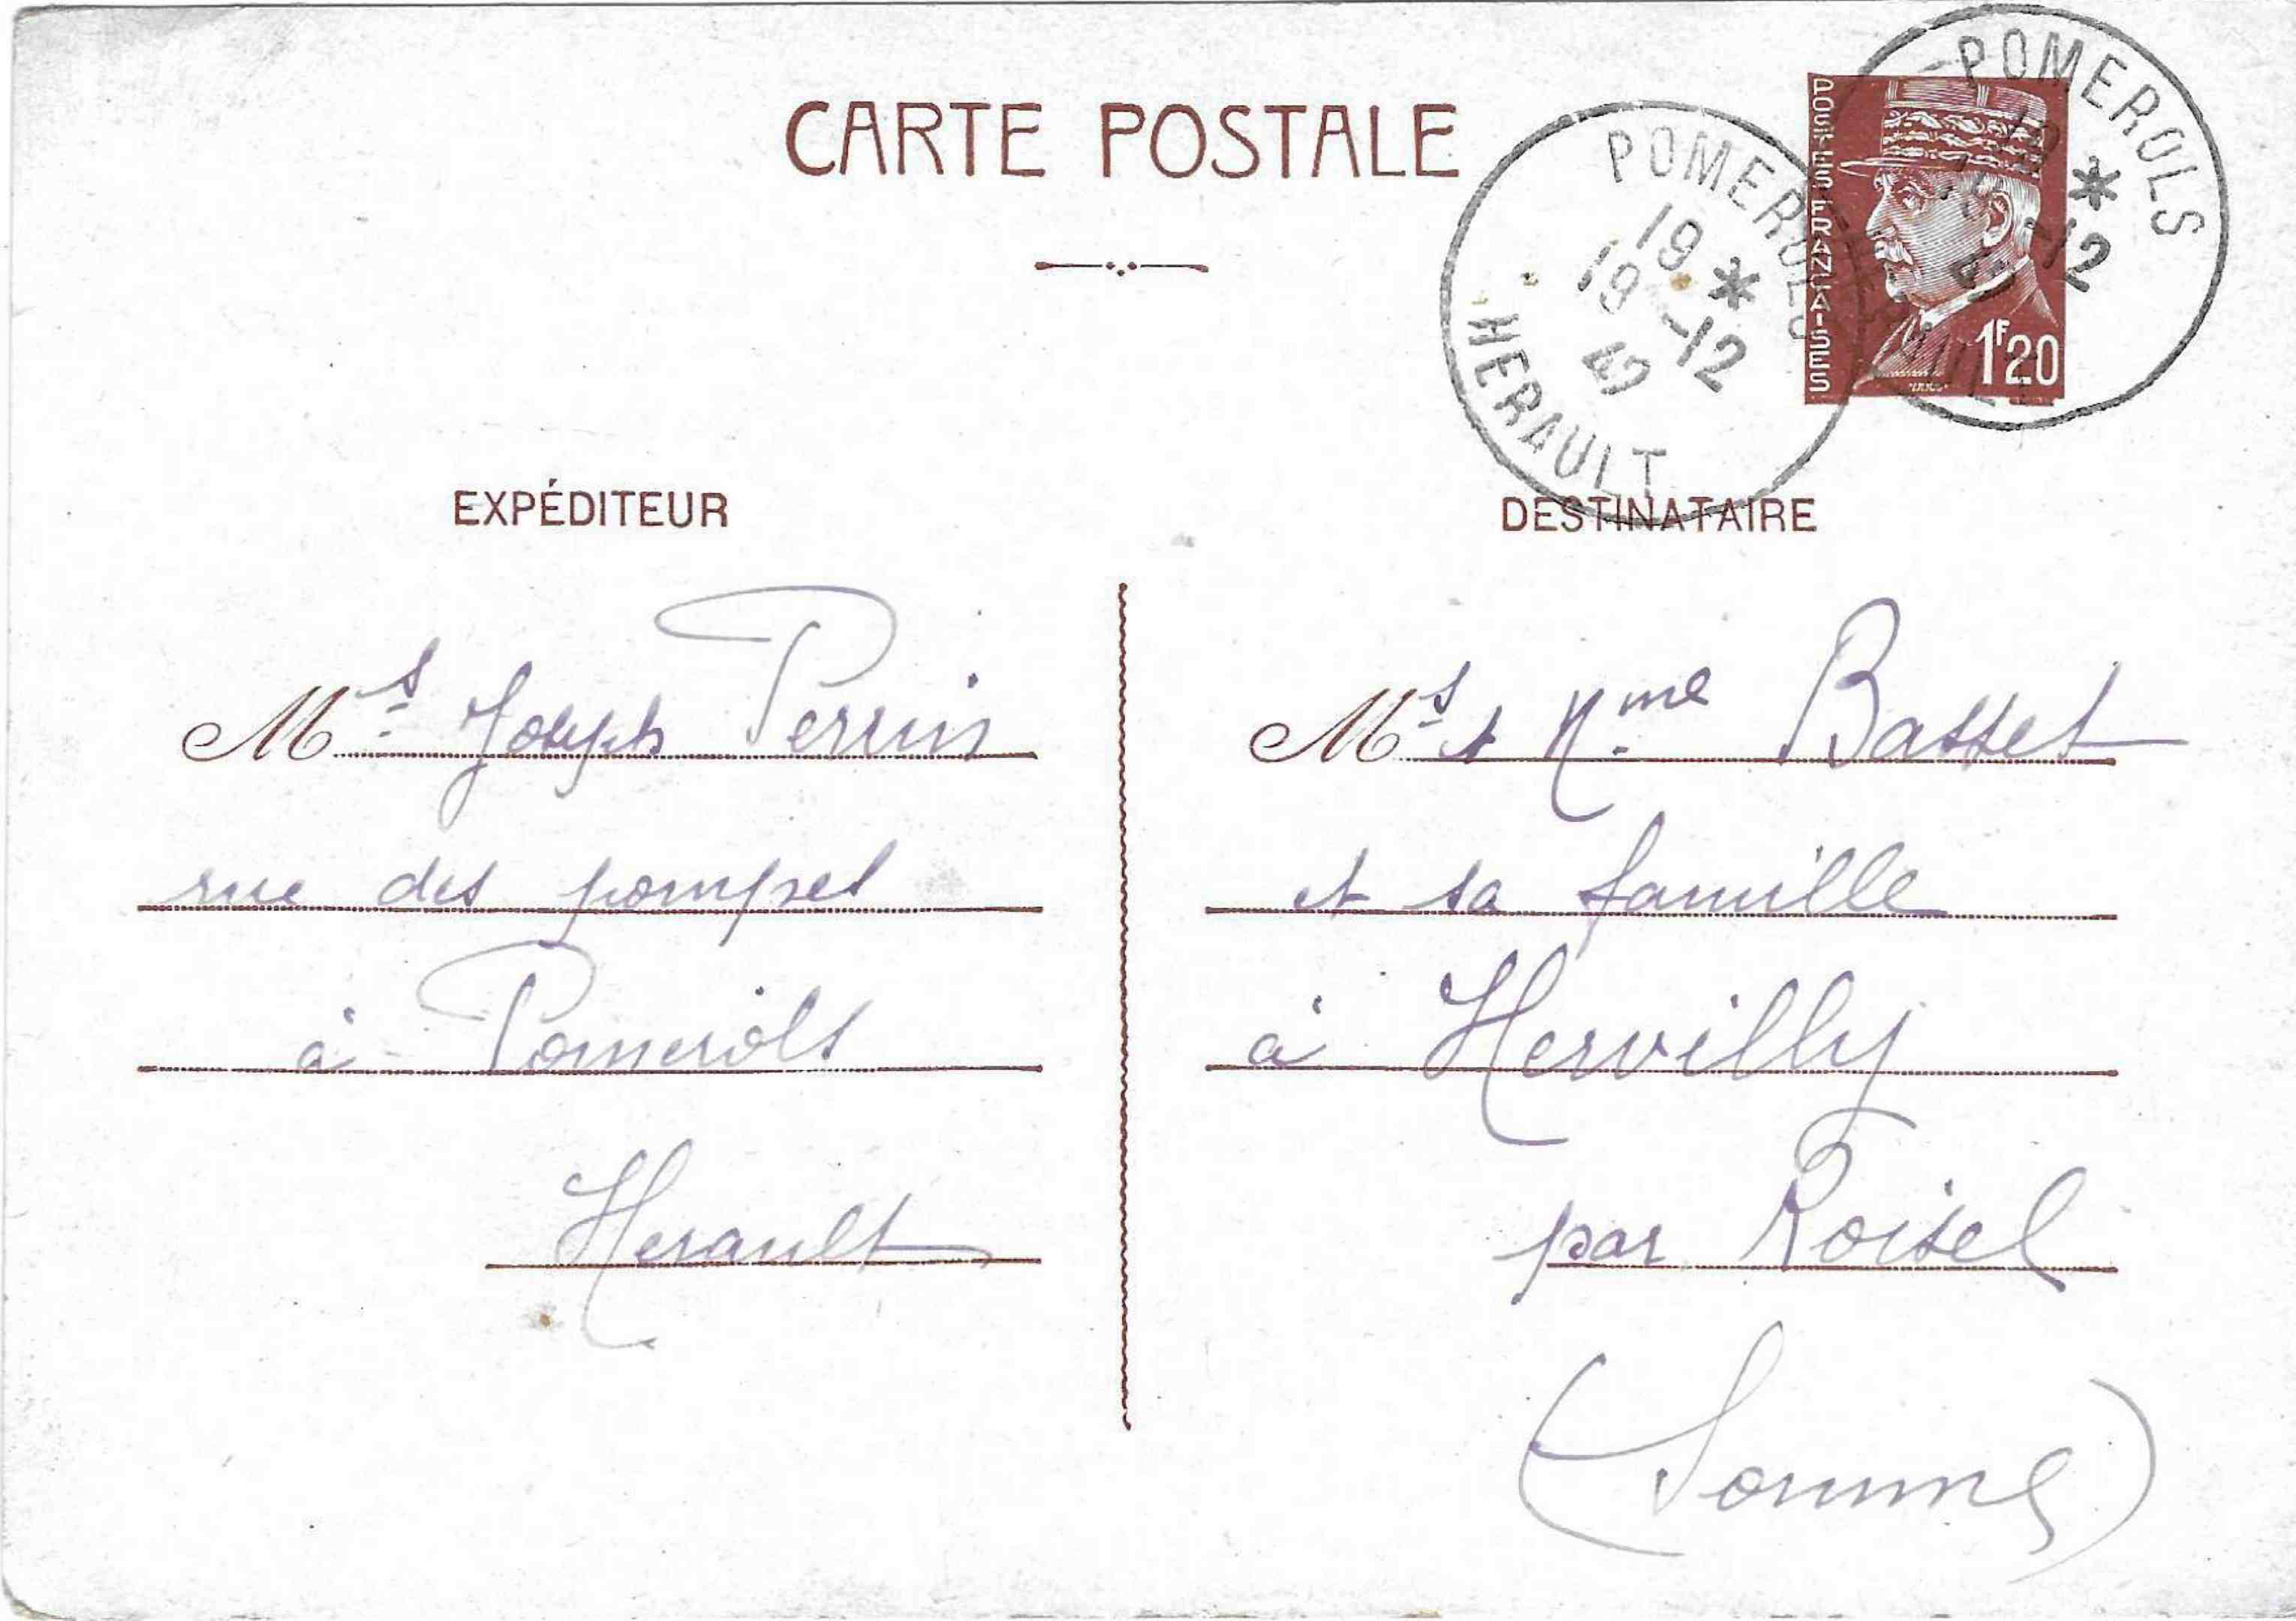 CARTE POSTALE
POSTES FRANÇAISES
1F20
POMEROLS
19 *
19 -12
42
HERAULT
POMEROLS
*
-12
EXPÉDITEUR
Mr Joseph Perrin
rue des pompes
à Pomerols
Herault
DESTINATAIRE
Mr et Mme Basset
et sa famille
à Hervilly
par Roisel
(Somme)